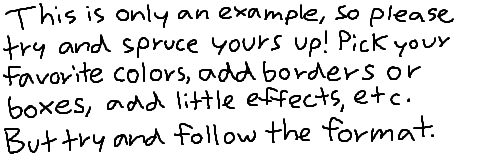 This is only an example, so please
try and spruce yours up! Pick your
favorite colors, add borders or
boxes, add little effects, etc.
But try and follow the format.